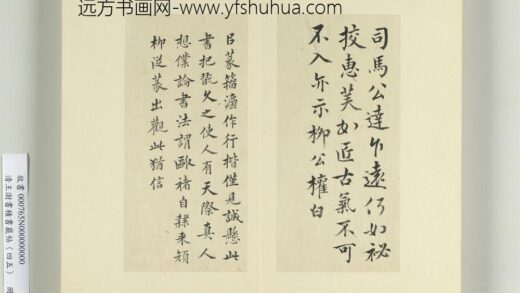 远方书画网-www.yfshuhua.com
司馬公達外遠仍如祕
不入亦示柳公權白
以篆籀瀟作行楷僅見誠懸此
書把翫久之使人有天際真人
想僕論書法謂歐褚自隸来顏
柳从篆出觀此猶信
故書 000765N000000000
清王澍書積書巖帖(四五)